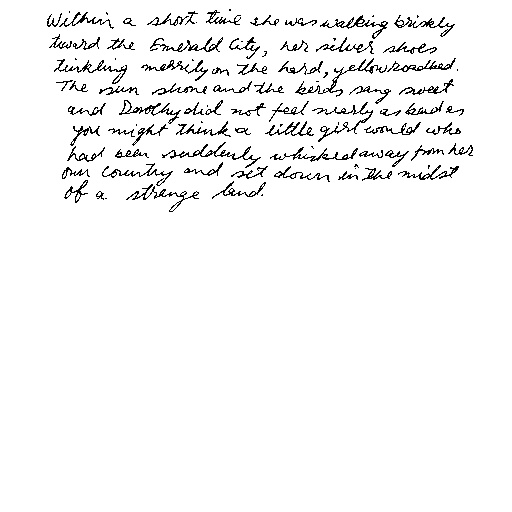 Within a short time she was walking briskly
toward the Emerald City, her silver shoes
tinkling merrily on the hard, yellow roadbed.
The sun shone and the birds sang sweet
and Dorothy did not feel nearly as bad as
you might think a little girl would who
had been suddenly whisked away from her
own country and set down in the midst
of a strange land.